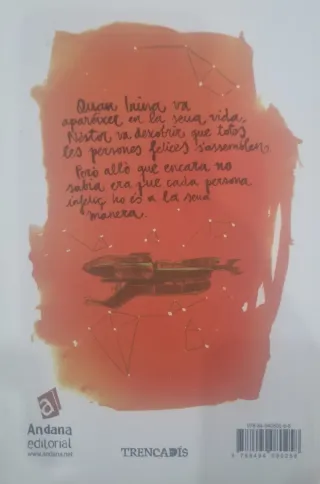 Quan Laura va
aparèixer en la seua vida,
Néstor va descobrir que totes
les persones felices s'assemblen.
Però allò que encara no
sabia era que cada persona
infeliç ho és a la seua
manera.
a
Andana
editorial
www.andana.net
TRENCADÍS